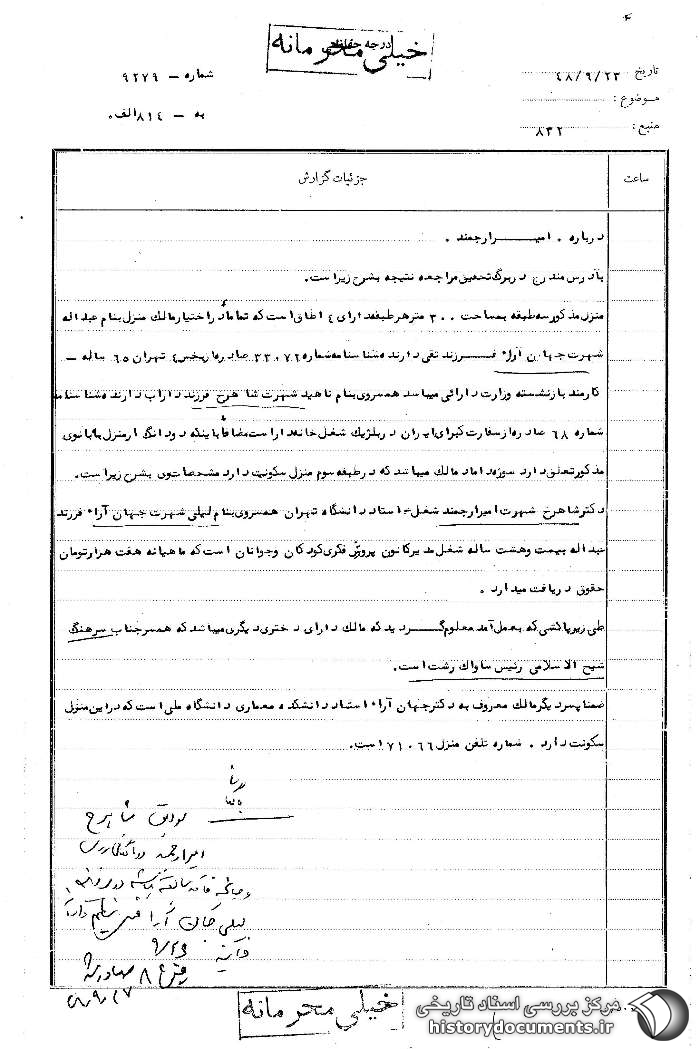 درجه حفاظتی
خیلی محرمانه
تاریخ ۴۸/۹/۲۳
شماره – ۹۲۷۹
موضوع :
به – ۸۱۴ الف۰
منبع : ۸۳۲
ساعت
جزئیات گزارش
درباره . امیر ارجمند .
بآدرس مندرج در برگ تحقیق مراجعه نتیجه بشرح زیر است.
منزل مذکور سه طبقه بمساحت ۳۰۰ متر هر طبقه دارای ٤ اطاق است که تماماً در اختیار مالک منزل بنام عبداله
شهرت جهان آراء فرزند تقی دارنده شناسنامه شماره ۳۳۰۷۲ صادره از بخش ٤ تهران ۶۵ ساله –
کارمند بازنشسته وزارت دارائی میباشد همسروی بنام ناهید شهرت شاهرخ فرزند داراب دارنده شناسنامه
شماره ۶۸ صادره از سفارت کبرای ایران در بلژیک شغل خانه دار است مضافاً باینکه دودانگ از منزل با بانوی
مذکور تعلق دارد سوژه داماد مالک میباشد که در طبقه سوم منزل سکونت دارد مشخصات وی بشرح زیر است.
دکتر شاهرخ شهرت امیر ارجمند شغل – استاد دانشگاه تهران همسروی بنام لیلی شهرت جهان آراء فرزند
عبداله بیست وهشت ساله شغل مدیر کانون پرورش فکری کودکان وجوانان است که ماهیانه هفت هزار تومان
حقوق دریافت میدارد .
طی زیر پاکشی که بعمل آمد معلوم گردید که مالک دارای دختری دیگری میباشد که همسر جناب سرهنگ
شیخ الاسلامی رئیس ساواک رشت است.
ضمنا پسر دیگر مالک معروف به دکتر جهان آراء استاد دانشکده معماری دانشگاه ملی است که در این منزل
سکونت دارد . شماره تلفن منزل ۷۱۰۶۶ است.
شاهرخ
امیرارجمند
لیلی جهان آرا
۴۸/۹/۲۷
خیلی محرمانه
مرکز بررسی اسناد تاریخی
historydocuments.ir